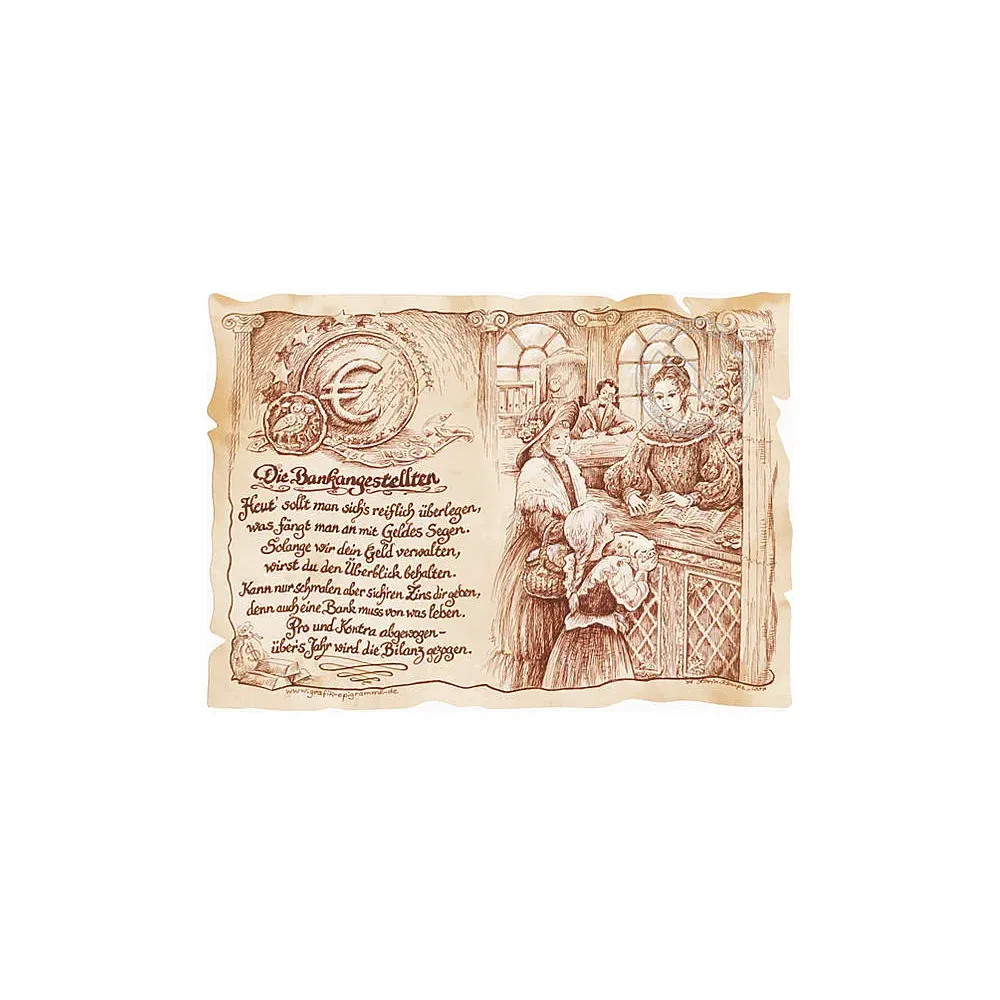 Die Bankangestellten
Heut' sollt man sich's reiflich überlegen,
was fängt man an mit Geldes Segen.
Solange wir dein Geld verwalten,
wirst du den Überblick behalten.
Kann nur schmalen aber sich'ren Zins dir geben,
denn auch eine Bank muss von was leben.
Pro und Kontra abgewogen-
übers Jahr wird die Bilanz gezogen.
www.grafik-epigramme.de